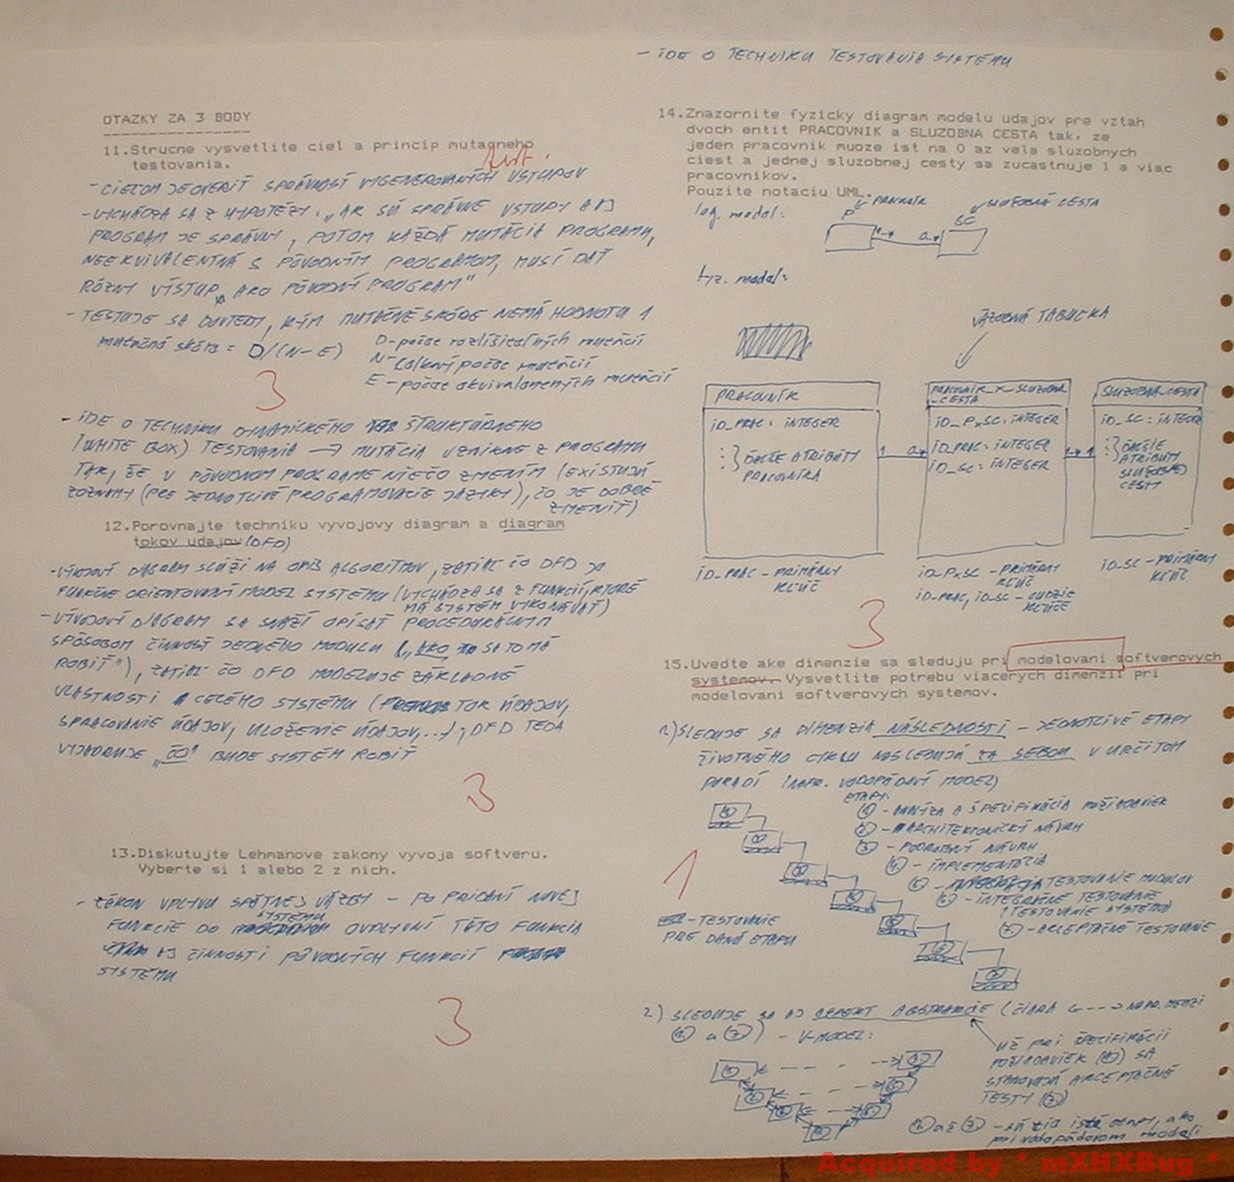 - IDE O TECHNIKU TESTOVANIA SYSTÉMU
OTAZKY ZA 3 BODY
11.Strucne vysvetlite ciel a princip mutagneho
testovania.
- CIEĽOM JE OVERIŤ SPRÁVNOSŤ VYGENEROVANÝCH VSTUPOV
- VYCHÁDZA SA Z HYPOTÉZY: „AK SÚ SPRÁVNE VSTUPY AJ
PROGRAM JE SPRÁVNY, POTOM KAŽDÁ MUTÁCIA PROGRAMU,
NEEKVIVALENTNÁ S PÔVODNÝM PROGRAMOM, MUSÍ DAŤ
RÔZNY VÝSTUP, AKO PÔVODNÝ PROGRAM"
- TESTUJE SA DOVTEDY, KÝM MUTAČNÉ SKÓRE NEMÁ HODNOTU 1
mutačné skóre = D/(N-E)
D-počet rozlíšiteľných mutácií
N-celkový počet mutácií
E-počet ekvivalentných mutácií
3
- IDE O TECHNIKU DYNAMICKÉHO ŠTRUKTURNÉHO
(WHITE BOX) TESTOVANIA → MUTÁCIA VZNIKNE Z PROGRAMU
TAK, ŽE V PÔVODNOM PROGRAME NIEČO ZMENÍM (EXISTUJÚ
ZOZNAMY (PRE JEDNOTLIVÉ PROGRAMOVACIE JAZYKY), ČO JE DOBRÉ
ZMENIŤ)
12.Porovnajte techniku vyvojovy diagram a diagram
tokov udajov (DFD)
- VÝVOJOVÝ DIAGRAM SLÚŽI NA OPIS ALGORITMOV, ZATIAĽ ČO DFD JE
FUNKČNE ORIENTOVANÝ MODEL SYSTÉMU (VYCHÁDZA SA Z FUNKCIÍ, KTORÉ
MÁ SYSTÉM VYKONÁVAŤ)
- VÝVOJOVÝ DIAGRAM SA SNAŽÍ OPÍSAŤ PROCEDURÁLNYM
SPÔSOBOM ČINNOSŤ JEDNÉHO MODULU („AKO SA TO MÁ
ROBIŤ"), ZATIAĽ ČO DFD MODELUJE ZÁKLADNÉ
VLASTNOSTI CELÉHO SYSTÉMU (TOK ÚDAJOV,
SPRACOVANIE ÚDAJOV, ULOŽENIE ÚDAJOV,...); DFD TEDA
VYJADRUJE „ČO" BUDE SYSTÉM ROBIŤ
3
13.Diskutujte Lehmanove zakony vyvoja softveru.
Vyberte si 1 alebo 2 z nich.
- ZÁKON VPLYVU SPÄTNEJ VÄZBY - PO PRIDANÍ NOVEJ
FUNKCIE DO SYSTÉMU OVPLYVNÍ TÁTO FUNKCIA
AJ ČINNOSTI PÔVODNÝCH FUNKCIÍ
SYSTÉMU
3
14.Znazornite fyzicky diagram modelu udajov pre vztah
dvoch entit PRACOVNIK a SLUZOBNA CESTA tak, ze
jeden pracovnik muoze ist na 0 az vela sluzobnych
ciest a jednej sluzobnej cesty sa zucastnuje 1 a viac
pracovnikov.
Pouzite notaciu UML.
log. model:
P
PRACOVNÍK
SC
SLUŽOBNÁ CESTA
1..*
0..*
fyz. model:
VÄZOBNÁ TABUĽKA
PRACOVNÍK
ID_PRAC: INTEGER
ĎALŠIE ATRIBÚTY
PRACOVNÍKA
1
0..*
PRACOVNÍK_X_SLUZOBNA
_CESTA
ID_PxSC: INTEGER
ID_PRAC: INTEGER
ID_SC: INTEGER
1..*
1
SLUZOBNA CESTA
ID_SC: INTEGER
ĎALŠIE
ATRIBÚTY
SLUŽOBNEJ
CESTY
ID_PRAC - PRIMÁRNY
KĽÚČ
ID_PxSC - PRIMÁRNY
KĽÚČ
ID_PRAC, ID_SC - CUDZIE
KĽÚČE
ID_SC - PRIMÁRNY
KĽÚČ
3
15.Uvedte ake dimenzie sa sleduju pri modelovani softverovych
systemov. Vysvetlite potrebu viacerych dimenzii pri
modelovani softverovych systemov.
1.) SLEDUJE SA DIMENZIA NÁSLEDNOSTI - JEDNOTLIVÉ ETAPY
ŽIVOTNÉHO CYKLU NASLEDUJÚ ZA SEBOU V URČITOM
PORADÍ (NAPR. VODOPÁDOVÝ MODEL)
ETAPY:
1 - ANALÝZA A ŠPECIFIKÁCIA POŽIADAVIEK
2 - ARCHITEKTONICKÝ NÁVRH
3 - PODROBNÝ NÁVRH
4 - IMPLEMENTÁCIA
5 - TESTOVANIE MODULOV
6 - INTEGRAČNÉ TESTOVANIE
(TESTOVANIE SYSTÉMU)
7 - AKCEPTAČNÉ TESTOVANIE
1
- TESTOVANIE
PRE DANÚ ETAPU
2.) SLEDUJE SA AJ ASPEKT ABSTRAKCIE (ČIARA <---> NAPR. MEDZI
1 a 7) - V-MODEL:
UŽ PRI ŠPECIFIKÁCII
POŽIADAVIEK (1) SA
STANOVUJÚ AKCEPTAČNÉ
TESTY (7)
1 až 7 - sú tie isté etapy, ako
pri vodopádovom modeli
Acquired by * mXHXBug *